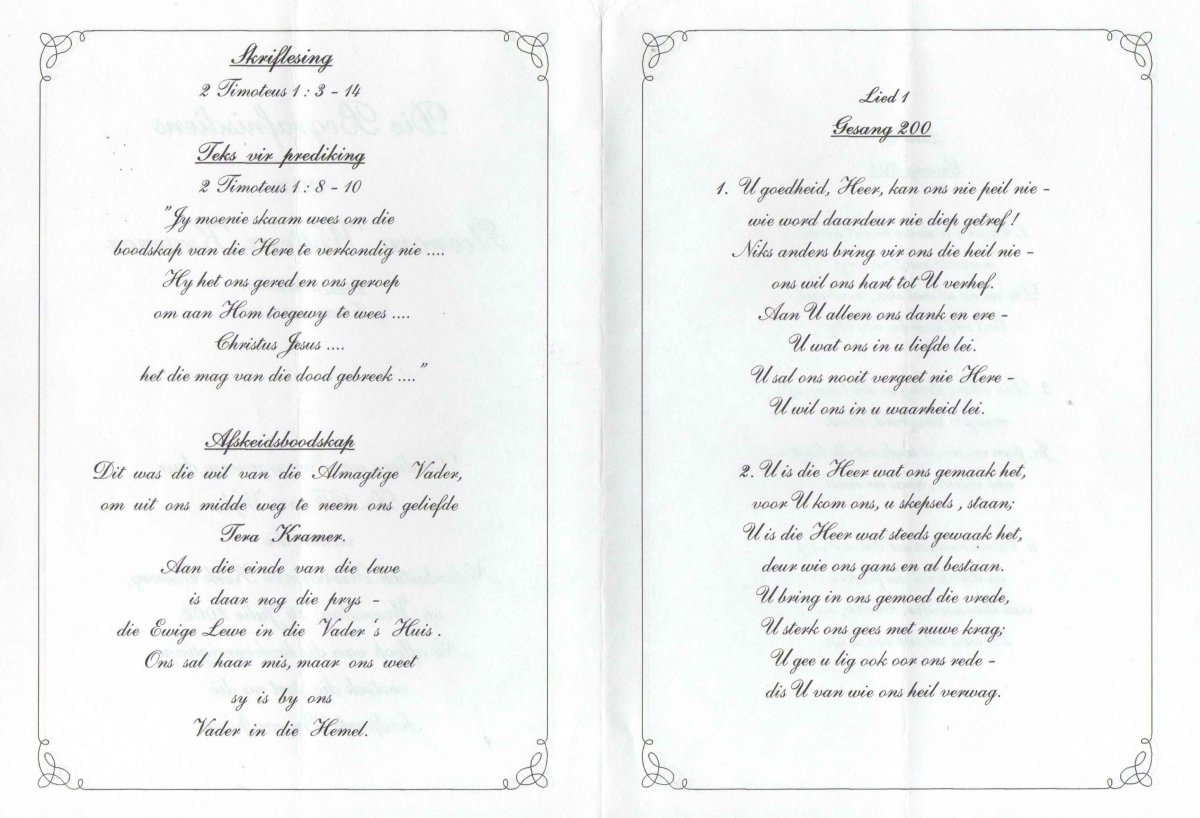 Skriflesing
2 Timoteus 1 : 3 - 14
Teks vir prediking
2 Timoteus 1 : 8 - 10
"Jy moenie skaam wees om die
boodskap van die Here te verkondig nie ....
Hy het ons gered en ons geroep
om aan Hom toegewy te wees ....
Christus Jesus ....
het die mag van die dood gebreek ...."
Afskeidsboodskap
Dit was die wil van die Almagtige Vader,
om uit ons midde weg te neem ons geliefde
Tera Kramer.
Aan die einde van die lewe
is daar nog die prys -
die Ewige Lewe in die Vader's Huis.
Ons sal haar mis, maar ons weet
sy is by ons
Vader in die Hemel.
Lied 1
Gesang 200
1. U goedheid, Heer, kan ons nie peil nie -
wie word daardeur nie diep getref!
Niks anders bring vir ons die heil nie -
ons wil ons hart tot U verhef.
Aan U alleen ons dank en ere -
U wat ons in u liefde lei.
U sal ons nooit vergeet nie Here -
U wil ons in u waarheid lei.
2. U is die Heer wat ons gemaak het,
voor U kom ons, u skepsels , staan;
U is die Heer wat steeds gewaak het,
deur wie ons gans en al bestaan.
U bring in ons gemoed die vrede,
U sterk ons gees met nuwe krag;
U gee u lig ook oor ons rede -
dis U van wie ons heil verwag.